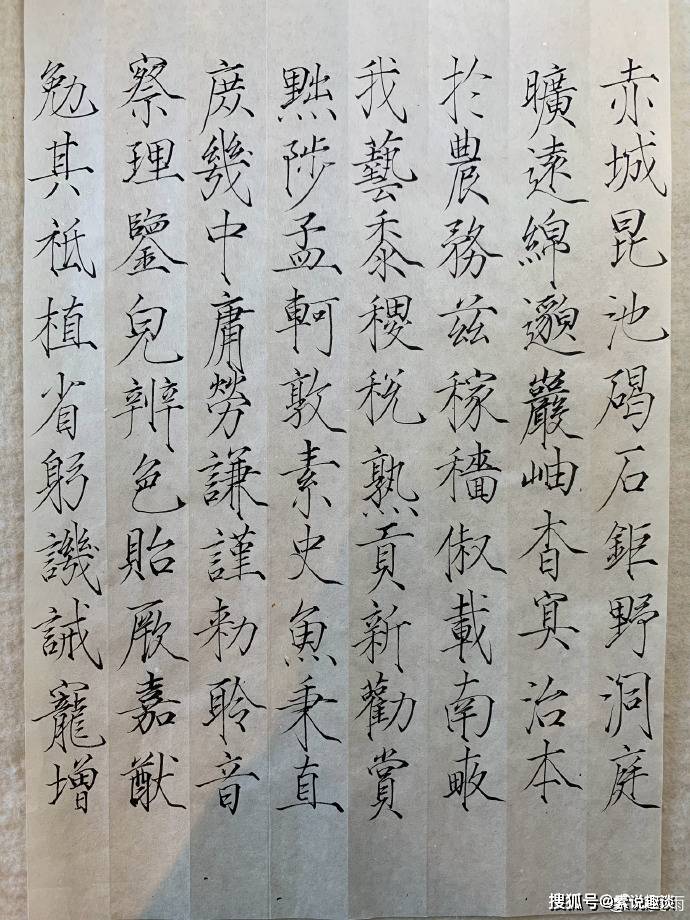 赤城昆池碣石鉅野洞庭
曠遠綿邈巖岫杳冥治本
於農務兹稼穡俶載南畝
我藝黍稷稅熟貢新勸賞
黜陟孟軻敦素史魚秉直
庶幾中庸勞謙謹勑聆音
察理鑒皃辨色貽厥嘉猷
勉其祗植省躬譏誡寵增
搜狐号@紊说趣谈